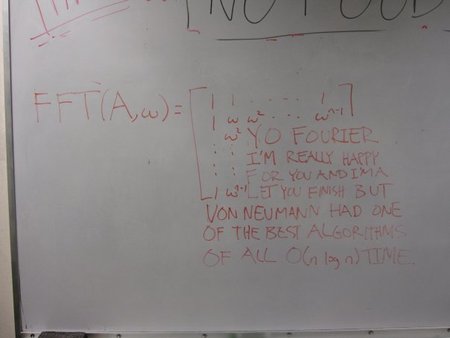 NO FOOD
FFT(A,ω)= 1 1 . . . . . 1
1 ω ω² . . . . ωⁿ⁻¹
: ω² YO FOURIER
: : I'M REALLY HAPPY
: : FOR YOU AND I'MA
1 ωⁿ⁻¹ LET YOU FINISH BUT
VON NEUMANN HAD ONE
OF THE BEST ALGORITHMS
OF ALL O(n log n) TIME.